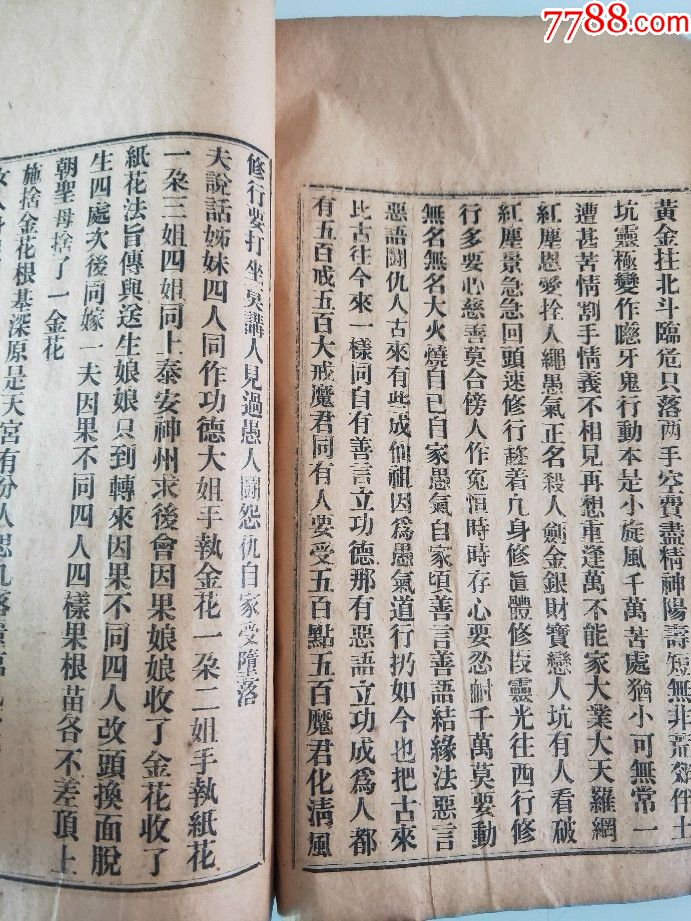 7788.com
黃金拄北斗臨危只落两手空費盡精神陽壽短無非荒郊伴土
坑靈極變作隱牙鬼行動本是小旋風千萬苦處猶小可無常一
遭甚苦情割手情義不相見再想重逢萬不能家大業大天羅網
紅塵恩愛拴人繩愚氣正名殺人劍金銀財寶戀人坑有人看破
紅塵景急急回頭速修行趂着凢身修眞體修叚靈光往西行修
行多要心慈善莫合傍人作寃恒時時存心要忍耐千萬莫要動
無名無名大火燒自已自家愚氣自家頃善言善語結緣法惡言
惡語鬪仇人古來有些成仙祖因爲愚氣道行扔如今也把古來
比古往今來一樣同自有善言立功德那有惡語立功成爲人都
有五百戒五百大戒魔君同有人要受五百點五百魔君化清風
修行要打坐莫講人見過愚人鬪怨仇自家受墮落
夫說話姊妹四人同作功德大姐手執金花一朶二姐手執紙花
一朶三姐四姐同上泰安神州求後會因果娘娘收了金花收了
紙花法旨傳與送生娘娘只到轉來因果不同四人改頭換面脫
生四處次後同嫁一夫因果不同四人四樣果根苗各不差頂上
朝聖母捨了一金花
施捨金花根基深原是天宮有份人